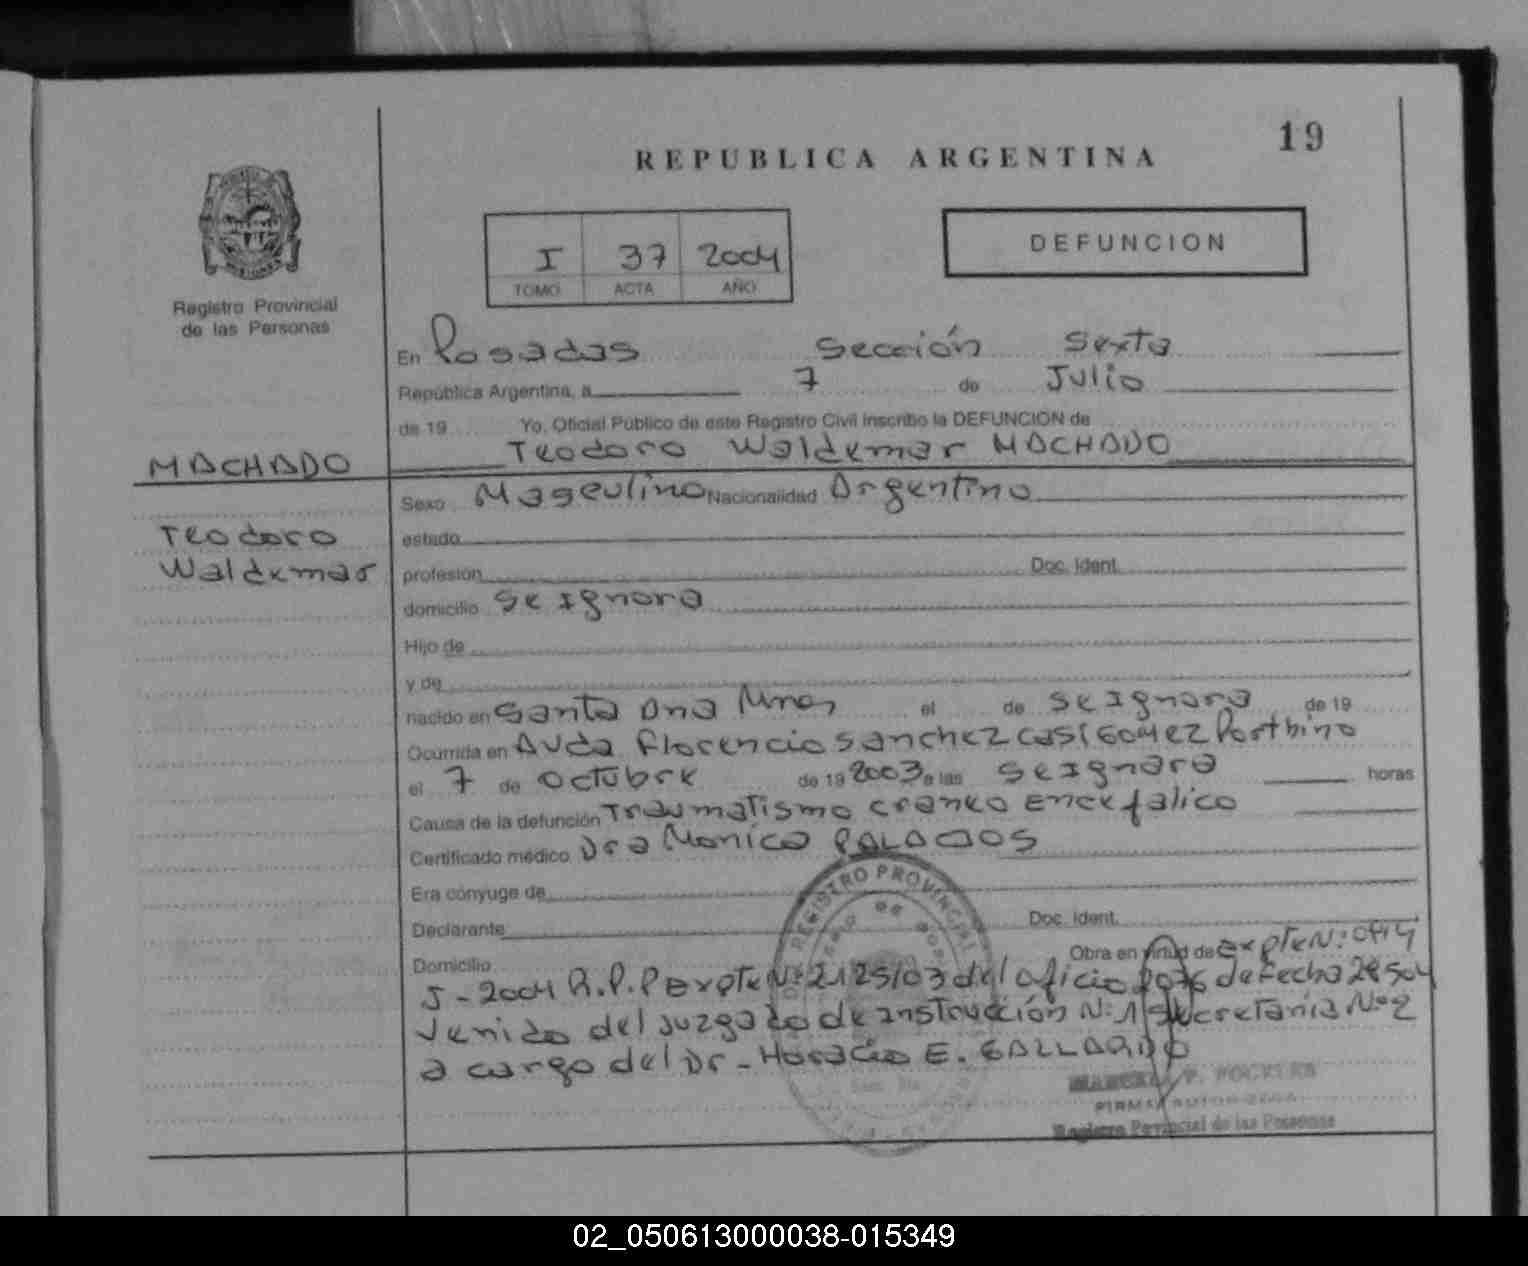 19
REPUBLICA ARGENTINA
I 37 2004
TOMO ACTA AÑO
DEFUNCION
Registro Provincial
de las Personas
En Posadas Sección Sexta
República Argentina, a 7 de Julio
de 19 Yo, Oficial Público de este Registro Civil inscribo la DEFUNCION de
Teodoro Waldemar MACHADO
MACHADO
Teodoro
Waldemar
Sexo Masculino Nacionalidad Argentino
estado
profesión Doc. Ident.
domicilio Se Ignora
Hijo de
y de
nacido en Santa Ana Mnes el de Se Ignora de 19
Ocurrida en Avda Florencio Sanchez casi Gomez Porthino
el 7 de Octubre de 19 2003 a las Se Ignora horas
Causa de la defunción Traumatismo craneo Encefalico
Certificado médico Dra Monica PALACIOS
Era cónyuge de
Declarante Doc. Ident.
Domicilio Obra en virtud de Expte N:
J-2004 R.P.P Expte Nº 2125/03 del oficio de fecha
venido del Juzgado de Instrucción N:1 Secretaria Nº2
a cargo del Dr - Horacio E. GALLARDO
REGISTRO PROVINCIAL
Registro Provincial de las Personas
02_050613000038-015349